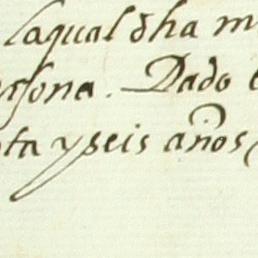 laqual dha m
ersona. Dado e
nta y seis años